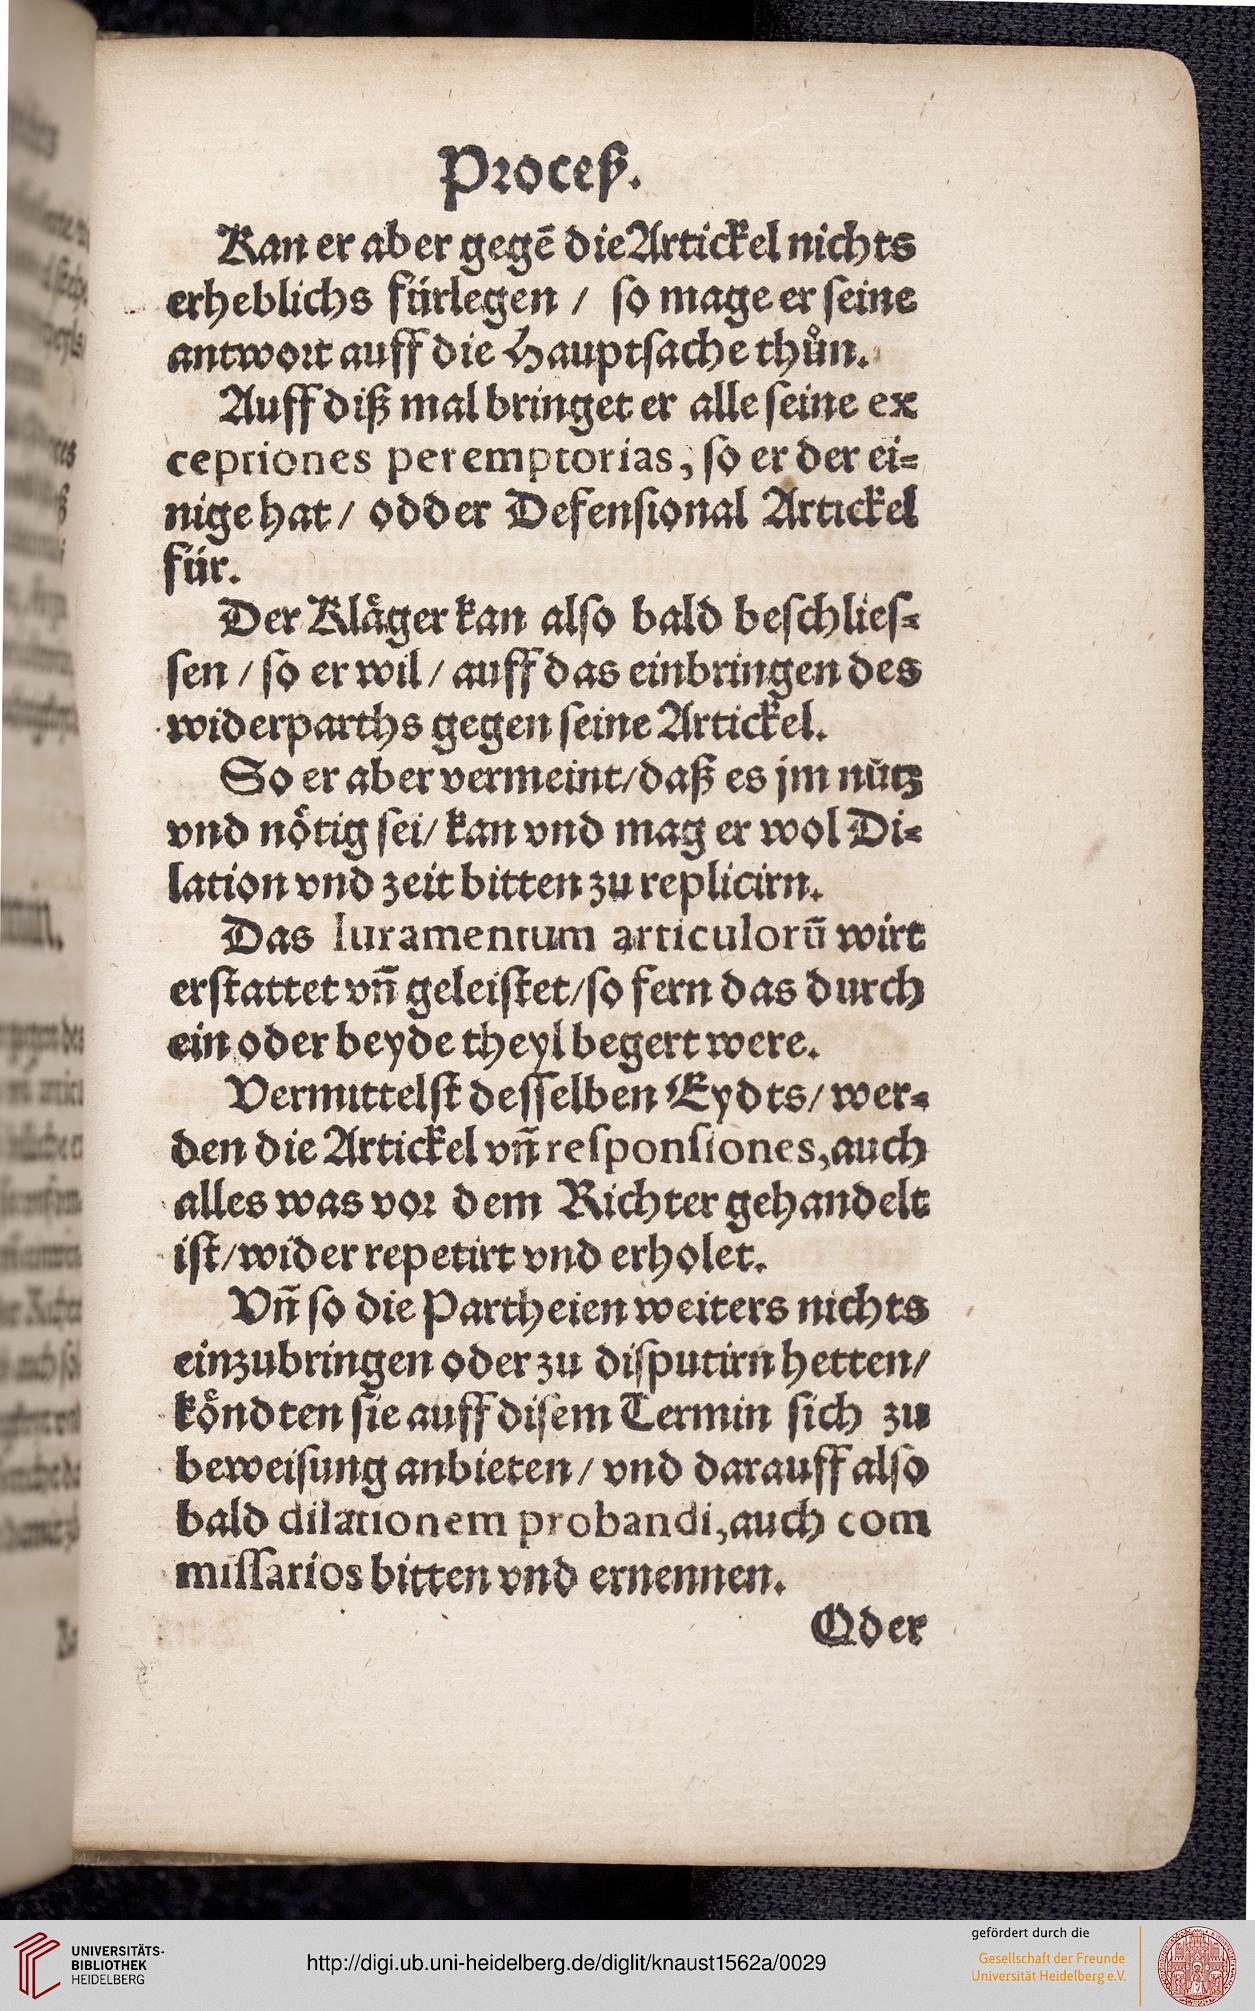 Proceß.
Kan er aber gegē die Artickel nichts
erheblichs fürlegen / so mage er seine
antwort auff die Hauptsache thůn.
Auff diß mal bringet er alle seine ex
ceptiones peremptorias, so er der ei=
nige hat / odder Defensional Artickel
für.
Der Kläger kan also bald beschlies=
sen / so er wil / auff das einbringen des
widerparths gegen seine Artickel.
So er aber vermeint/daß es jm nütz
vnd nötig sei/ kan vnd mag er wol Di=
lation vnd zeit bitten zu replicirn.
Das Iuramentum articulorū wirt
erstattet vñ geleistet/so fern das durch
ein oder beyde theyl begert were.
Vermittelst desselben Eydts/ wer=
den die Artickel vñ responsiones,auch
alles was vor dem Richter gehandelt
ist/wider repetirt vnd erholet.
Vñ so die Partheien weiters nichts
einzubringen oder zu disputirn hetten/
köndten sie auff disem Termin sich zu
beweisung anbieten / vnd darauff also
bald dilationem probandi,auch com
missarios bitten vnd ernennen.
Oder
UNIVERSITÄTS-
BIBLIOTHEK
HEIDELBERG
http://digi.ub.uni-heidelberg.de/diglit/knaust1562a/0029
gefördert durch die
Gesellschaft der Freunde
Universität Heidelberg e.V.